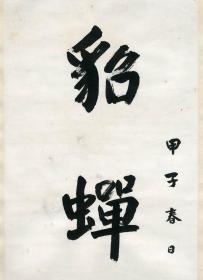 貂蟬
甲子春日